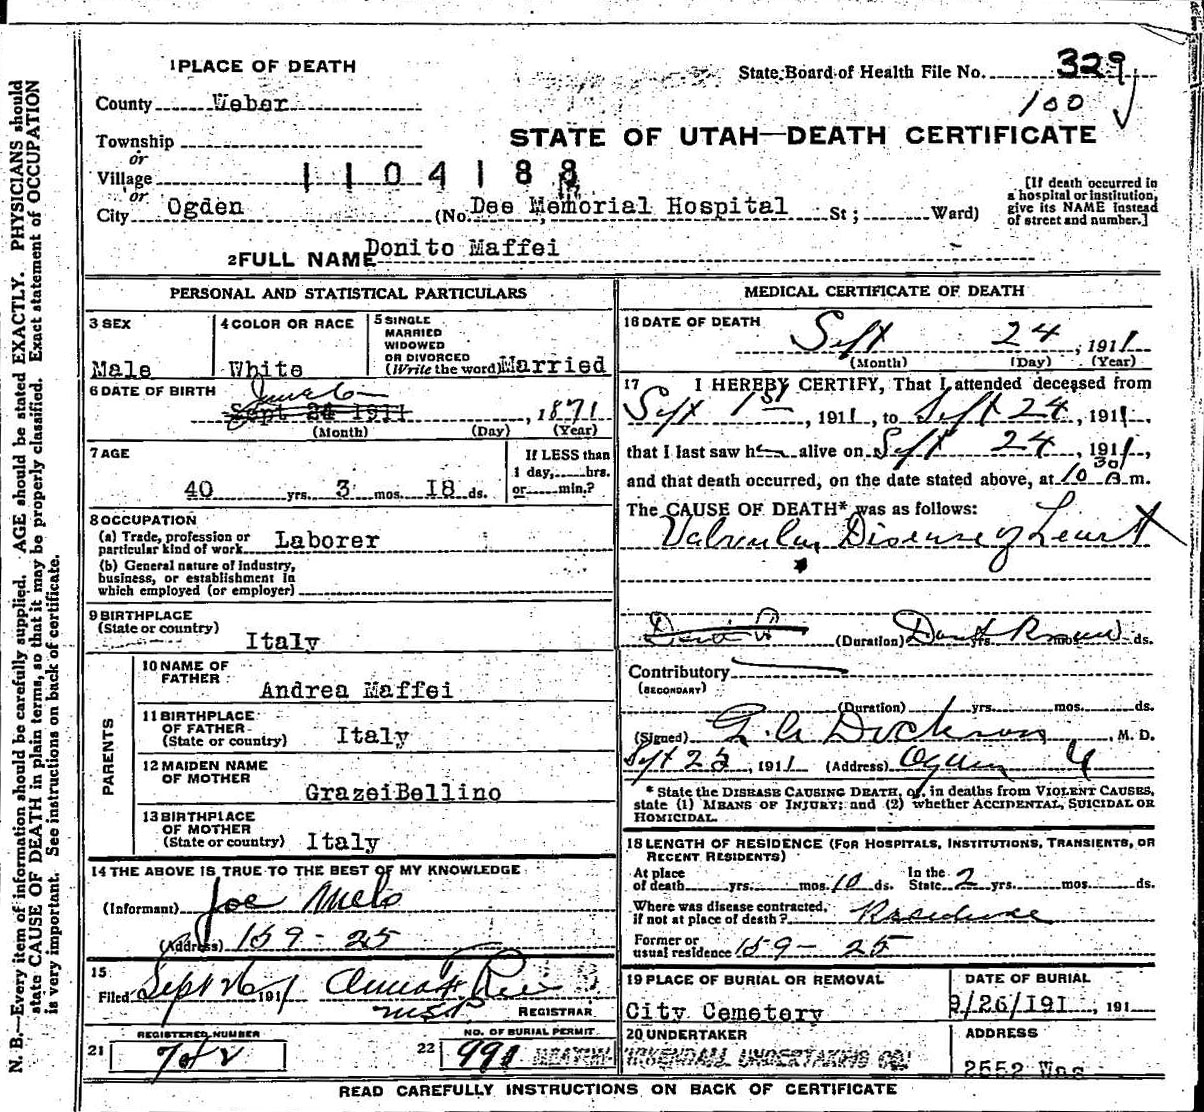 1 PLACE OF DEATH
State Board of Health File No. 329
100
County Weber
STATE OF UTAH—DEATH CERTIFICATE
Township
or
Village
1104188
or
City Ogden (No. Dee Memorial Hospital St; Ward)
[If death occurred in
a hospital or institution,
give its NAME instead
of street and number.]
2 FULL NAME Donito Maffei
PERSONAL AND STATISTICAL PARTICULARS
3 SEX
Male
4 COLOR OR RACE
White
5 SINGLE
MARRIED
WIDOWED
OR DIVORCED
(Write the word) Married
6 DATE OF BIRTH
June 6
Sept 24 1911, 1871
(Month) (Day) (Year)
7 AGE
40 yrs. 3 mos. 18 ds.
If LESS than
1 day, hrs.
or min.?
8 OCCUPATION
(a) Trade, profession or
particular kind of work Laborer
(b) General nature of industry,
business, or establishment in
which employed (or employer)
9 BIRTHPLACE
(State or country)
Italy
PARENTS
10 NAME OF
FATHER
Andrea Maffei
11 BIRTHPLACE
OF FATHER
(State or country) Italy
12 MAIDEN NAME
OF MOTHER
GrazeiBellino
13 BIRTHPLACE
OF MOTHER
(State or country) Italy
14 THE ABOVE IS TRUE TO THE BEST OF MY KNOWLEDGE
(Informant) Joe
(Address) 159 - 25
15
Filed Sept 26 1911
REGISTRAR
REGISTERED NUMBER
21
NO. OF BURIAL PERMIT
22 991
MEDICAL CERTIFICATE OF DEATH
16 DATE OF DEATH
Sept 24, 1911
(Month) (Day) (Year)
17 I HEREBY CERTIFY, That I attended deceased from
Sept 1st, 1911, to Sept 24, 1911,
that I last saw him alive on Sept 24, 1911,
and that death occurred, on the date stated above, at 10 30 A m.
The CAUSE OF DEATH* was as follows:
Valvular Disease of Heart
(Duration) Dont Know yrs. mos. ds.
Contributory
(SECONDARY)
(Duration) yrs. mos. ds.
(Signed) Dickson, M. D.
Sept 25, 1911 (Address) Ogden U
* State the DISEASE CAUSING DEATH, or, in deaths from VIOLENT CAUSES,
state (1) MEANS OF INJURY; and (2) whether ACCIDENTAL, SUICIDAL OR
HOMICIDAL.
18 LENGTH OF RESIDENCE (FOR HOSPITALS, INSTITUTIONS, TRANSIENTS, OR
RECENT RESIDENTS)
At place
of death yrs. mos. 10 ds.
In the
State 2 yrs. mos. ds.
Where was disease contracted,
if not at place of death? Residence
Former or
usual residence 159 - 25
19 PLACE OF BURIAL OR REMOVAL
City Cemetery
DATE OF BURIAL
9/26/191, 191
20 UNDERTAKER
KIRKENDALL UNDERTAKING CO.
ADDRESS
2552 Was
READ CAREFULLY INSTRUCTIONS ON BACK OF CERTIFICATE
N. B.—Every item of information should be carefully supplied. AGE should be stated EXACTLY. PHYSICIANS should
state CAUSE OF DEATH in plain terms, so that it may be properly classified. Exact statement of OCCUPATION
is very important. See instructions on back of certificate.